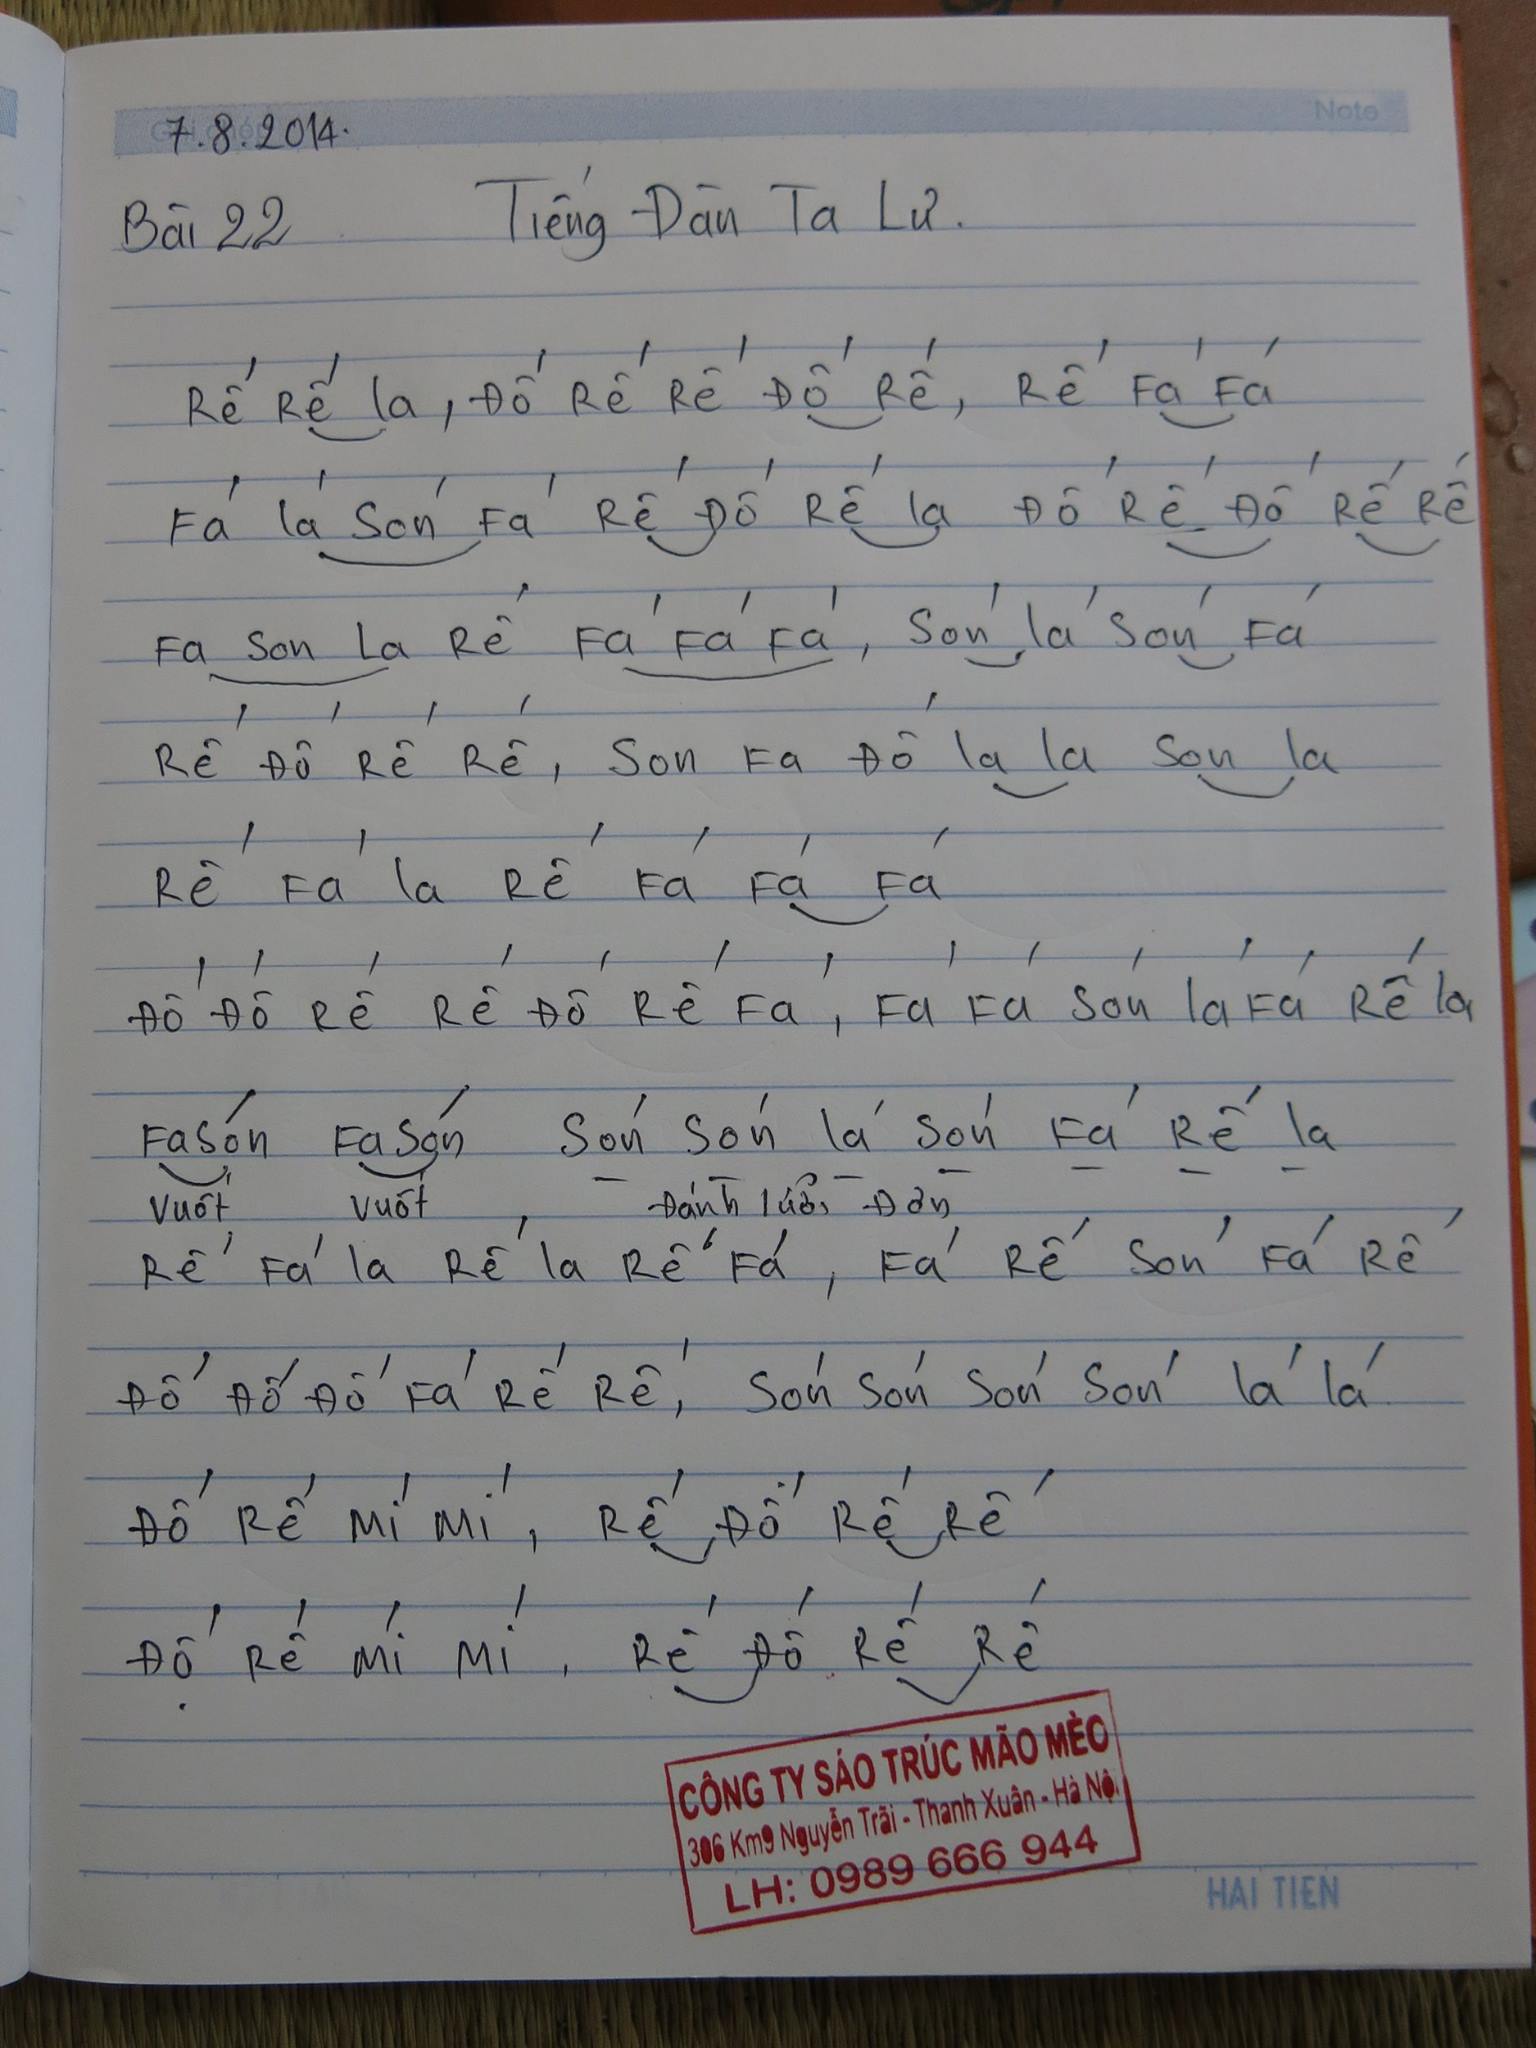 Note
7.8.2014.
Bài 22 Tiếng Đàn Ta Lư.
Rế Rế la, Đố Rế Rế Đố Rế, Rế Fá Fá
Fá lá Són Fá Rế Đố Rế la Đố Rế Đố Rế Rế
Fa Son La Rế Fá Fá Fá, Són lá Són Fá
Rế Đố Rế Rế, Son Fa Đố la la Son la
Rế Fá la Rế Fá Fá Fá
Đố Đố Rế Rế Đố Rế Fá, Fá Fá Són lá Fá Rế la
Fa Són Fa Són Són Són lá Són Fá Rế la
Vuốt Vuốt Đánh lưỡi Đơn
Rế Fá la Rế la Rế Fá, Fá Rế Són Fá Rế
Đố Đố Đố Fá Rế Rế, Són Són Són Són lá lá
Đố Rế Mí Mí, Rế Đố Rế Rế
Đố Rế Mí Mí, Rế Đố Rế Rế
CÔNG TY SÁO TRÚC MÃO MÈO
306 Km9 Nguyễn Trãi - Thanh Xuân - Hà Nội
LH: 0989 666 944
HAI TIEN